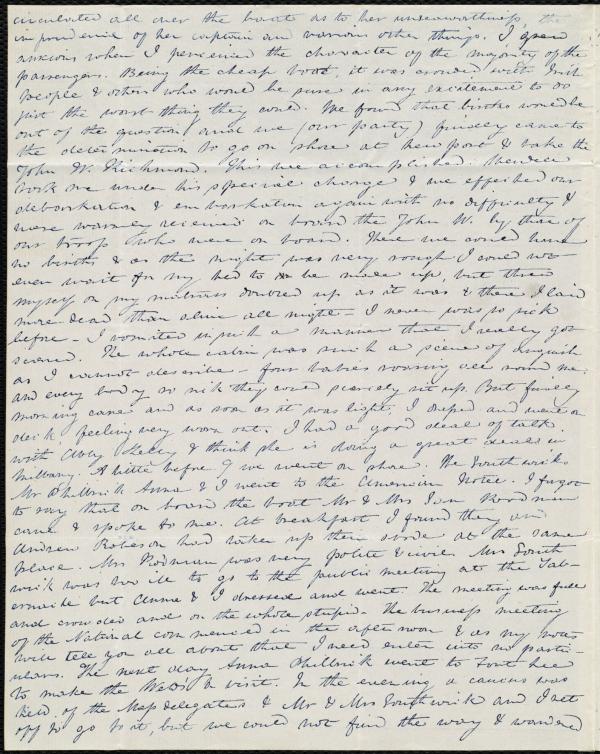 circulated all over the boat as to her unseaworthiness, the
imprudence of her captain and various other things. I grew
anxious when I perceived the character of the majority of the
passengers. Being the cheap boat, it was crowded with Irish
people & others who would be sure in any excitement to do
just the worst thing they could. We found that births would be
out of the question and we (our party) finally came to
the determination to go on shore at Newport & take the
John W. Richmond. This we accomplished. Wendell
took me under his special charge & we effected our
debarkation & embarkation again with no difficulty &
were warmly received on board the John W. by those of
our troop who were on board. There we could have
no births & as the night was very rough I could not
even wait for my bed to be made up, but threw
myself on my mattress doubled up as it was & there I laid
more dead than alive all night - I never was so sick
before - I vomited in such a manner that I really got
scared. The whole cabin was such a scene of anguish
as I cannot describe - four babies roaring all round me
and every body so sick they could scarcely sit up. But finally
morning came and as soon as it was light, I dressed and went on
deck feeling very worn out. I had a good deal of talk
with Abby Kelly & think she is doing a great deal in
A little before 9 we went on shore. The Southwicks
Mr Philbrick Anna & I went to the American Hotel. I forgot
to say that on board the boat Mr & Mrs Rodman
came & spoke to me. At breakfast I found they and
Andrew Robeson had taken up their abode at the same
place. Mrs Rodman was very polite & civil. Mrs South
wick was too ill to go to the public meeting at the Tab-
ernacle but Anna & I dressed and went. The meeting was full
and crowded and on the whole stupid. The business meeting
of the National commenced in the afternoon & as my notes
will tell you all about that I need enter into no partic-
ulars. The next day Anna Philbrick went to Fort Lee
to make the a visit. In the evening a caucus was
held of the Mass delegates & Mr & Mrs Southwick and I set
off to go to it, but we could not find the way & wandered